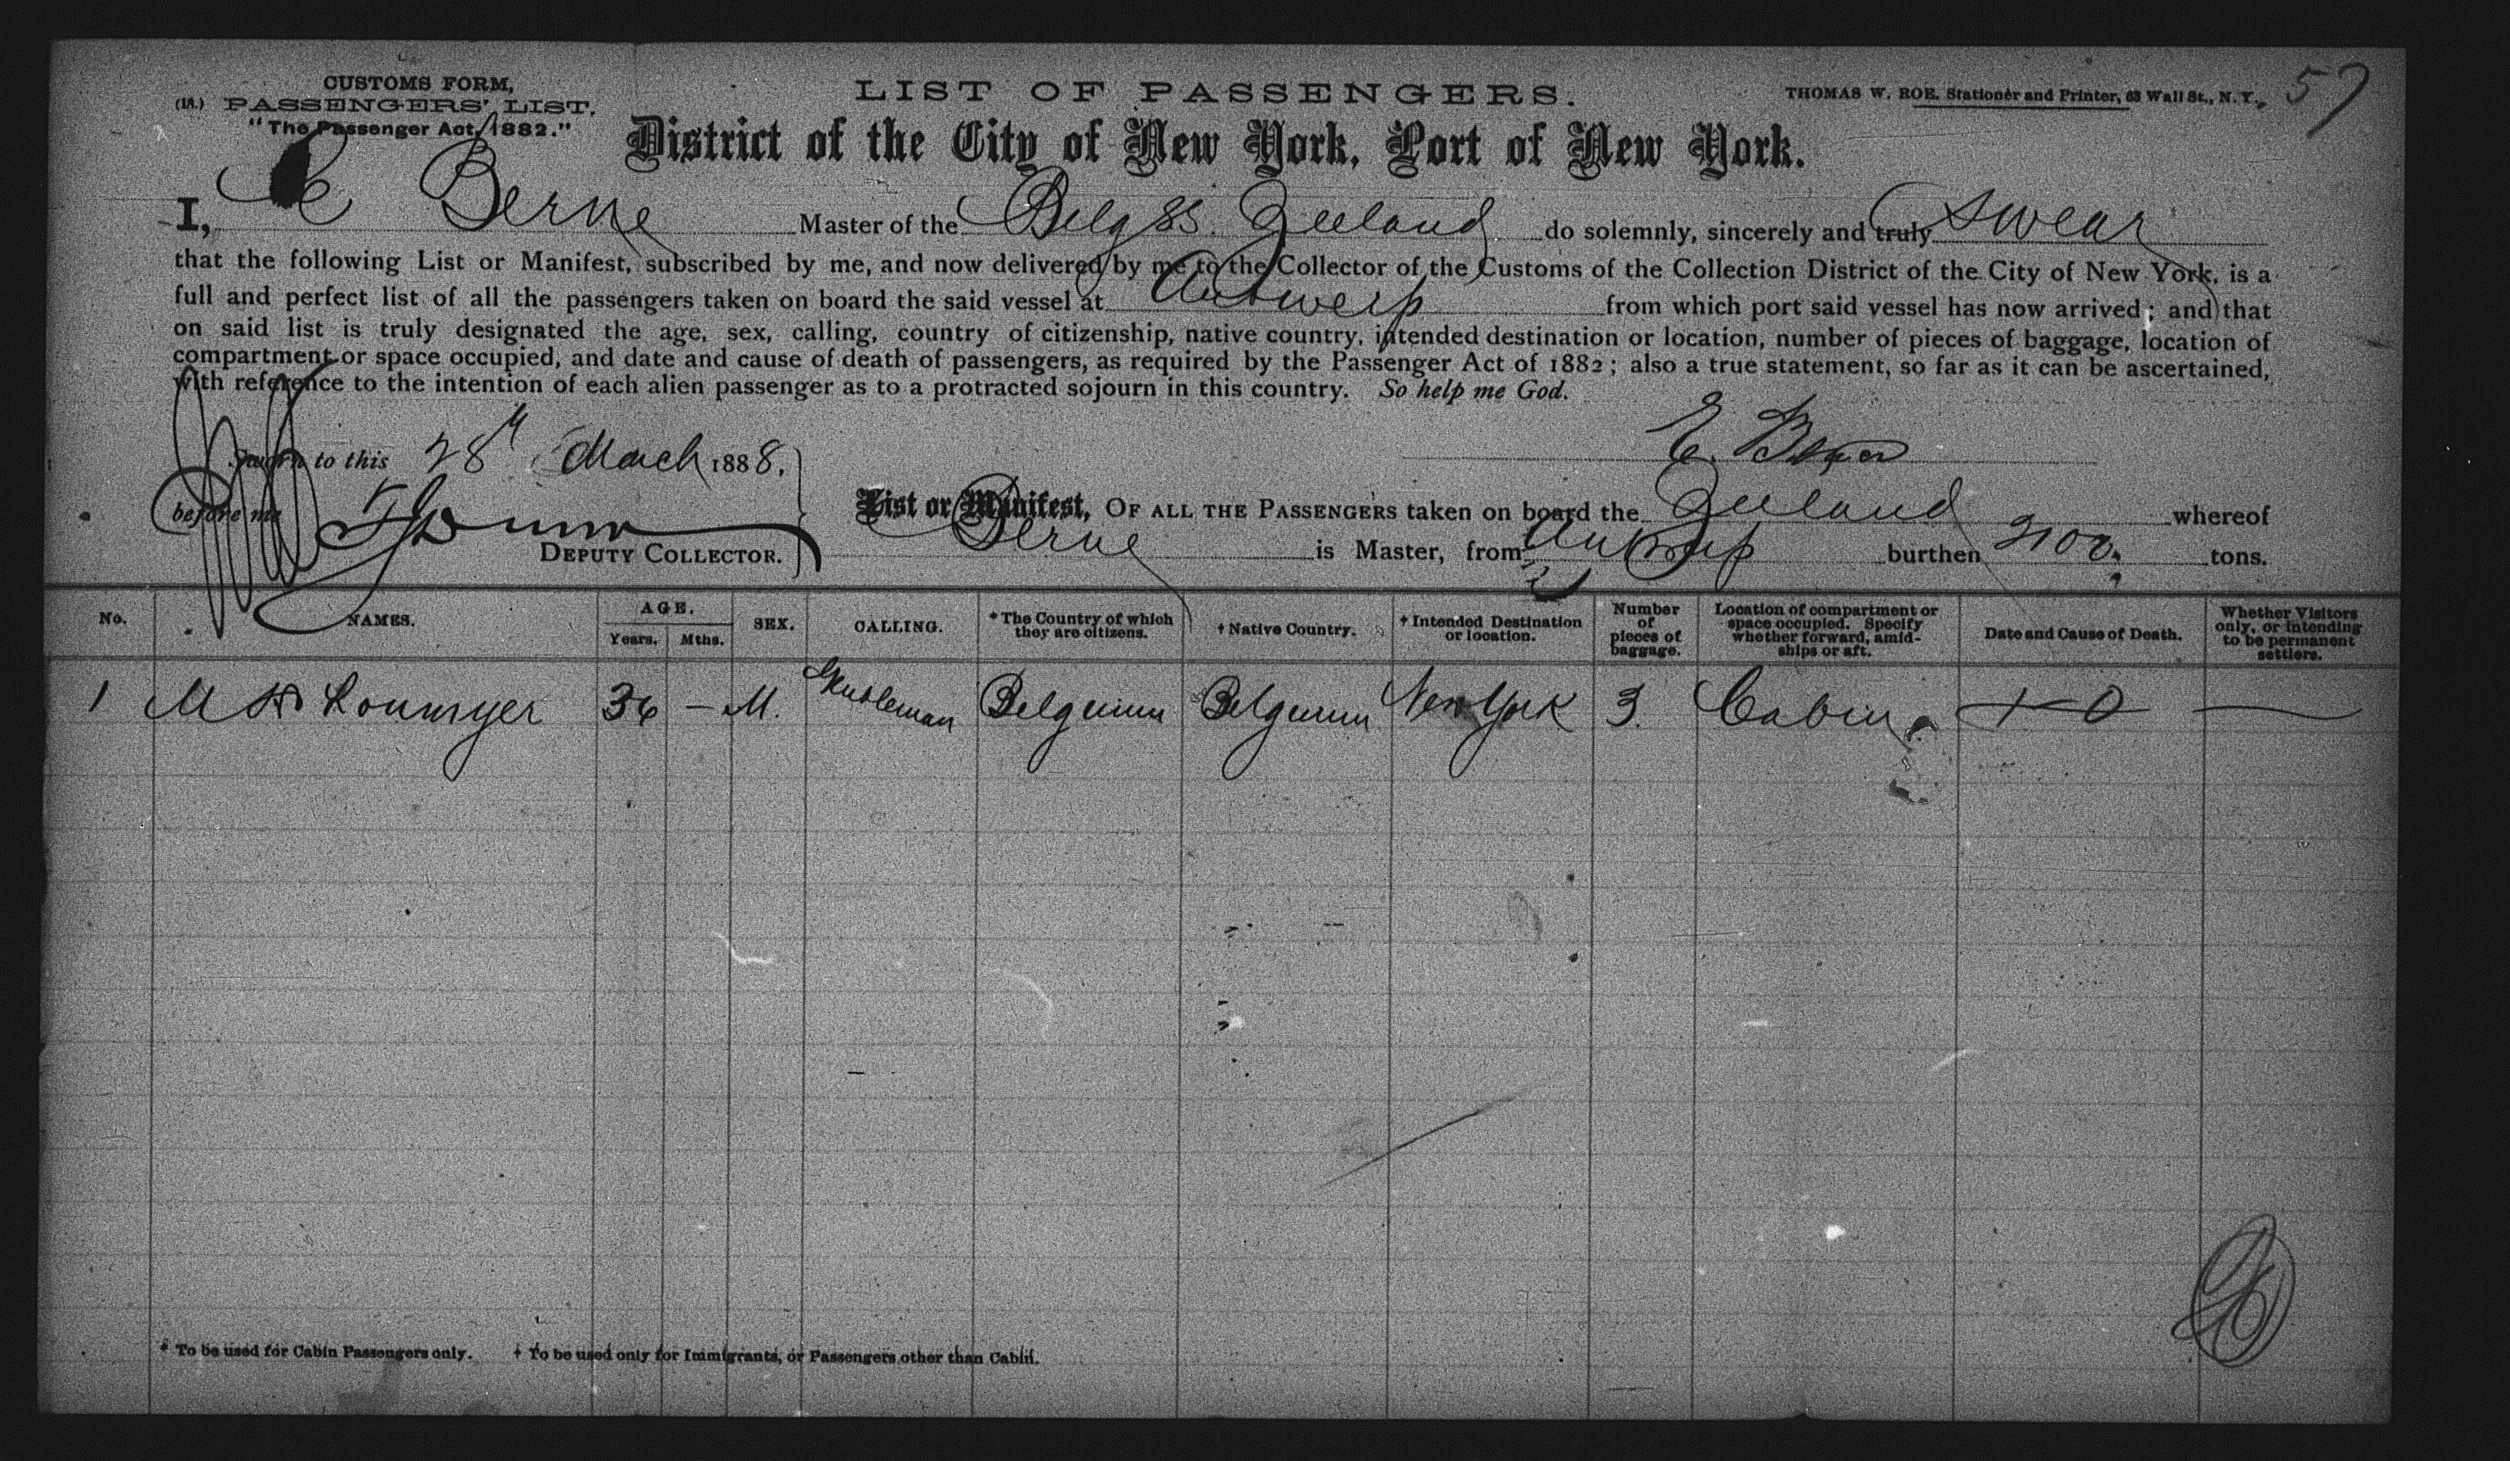 CUSTOMS FORM,
(1A.) PASSENGERS' LIST.
"The Passenger Act, 1882."
LIST OF PASSENGERS.
THOMAS W. ROE, Stationer and Printer, 63 Wall St., N. Y.
57
District of the City of New York, Port of New York.
I, E Berne Master of the Belg SS. Zeeland do solemnly, sincerely and truly swear
that the following List or Manifest, subscribed by me, and now delivered by me to the Collector of the Customs of the Collection District of the City of New York, is a
full and perfect list of all the passengers taken on board the said vessel at Antwerp from which port said vessel has now arrived; and that
on said list is truly designated the age, sex, calling, country of citizenship, native country, intended destination or location, number of pieces of baggage, location of
compartment or space occupied, and date and cause of death of passengers, as required by the Passenger Act of 1882; also a true statement, so far as it can be ascertained,
with reference to the intention of each alien passenger as to a protracted sojourn in this country. So help me God.
Sworn to this 28th March 1888,
E.
before me
DEPUTY COLLECTOR.
List or Manifest, OF ALL THE PASSENGERS taken on board the Zeeland whereof
Berne is Master, from Antwerp burthen tons.
No. NAMES. AGE. Years. Mths. SEX. CALLING. *The Country of which they are citizens. †Native Country. †Intended Destination or location. Number of pieces of baggage. Location of compartment or space occupied. Specify whether forward, amidships or aft. Date and Cause of Death. Whether Visitors only, or intending to be permanent settlers.
1 M 36 — M. Gentleman Belgium Belgium New York 3. Cabin
* To be used for Cabin Passengers only. † To be used only for Immigrants, or Passengers other than Cabin.